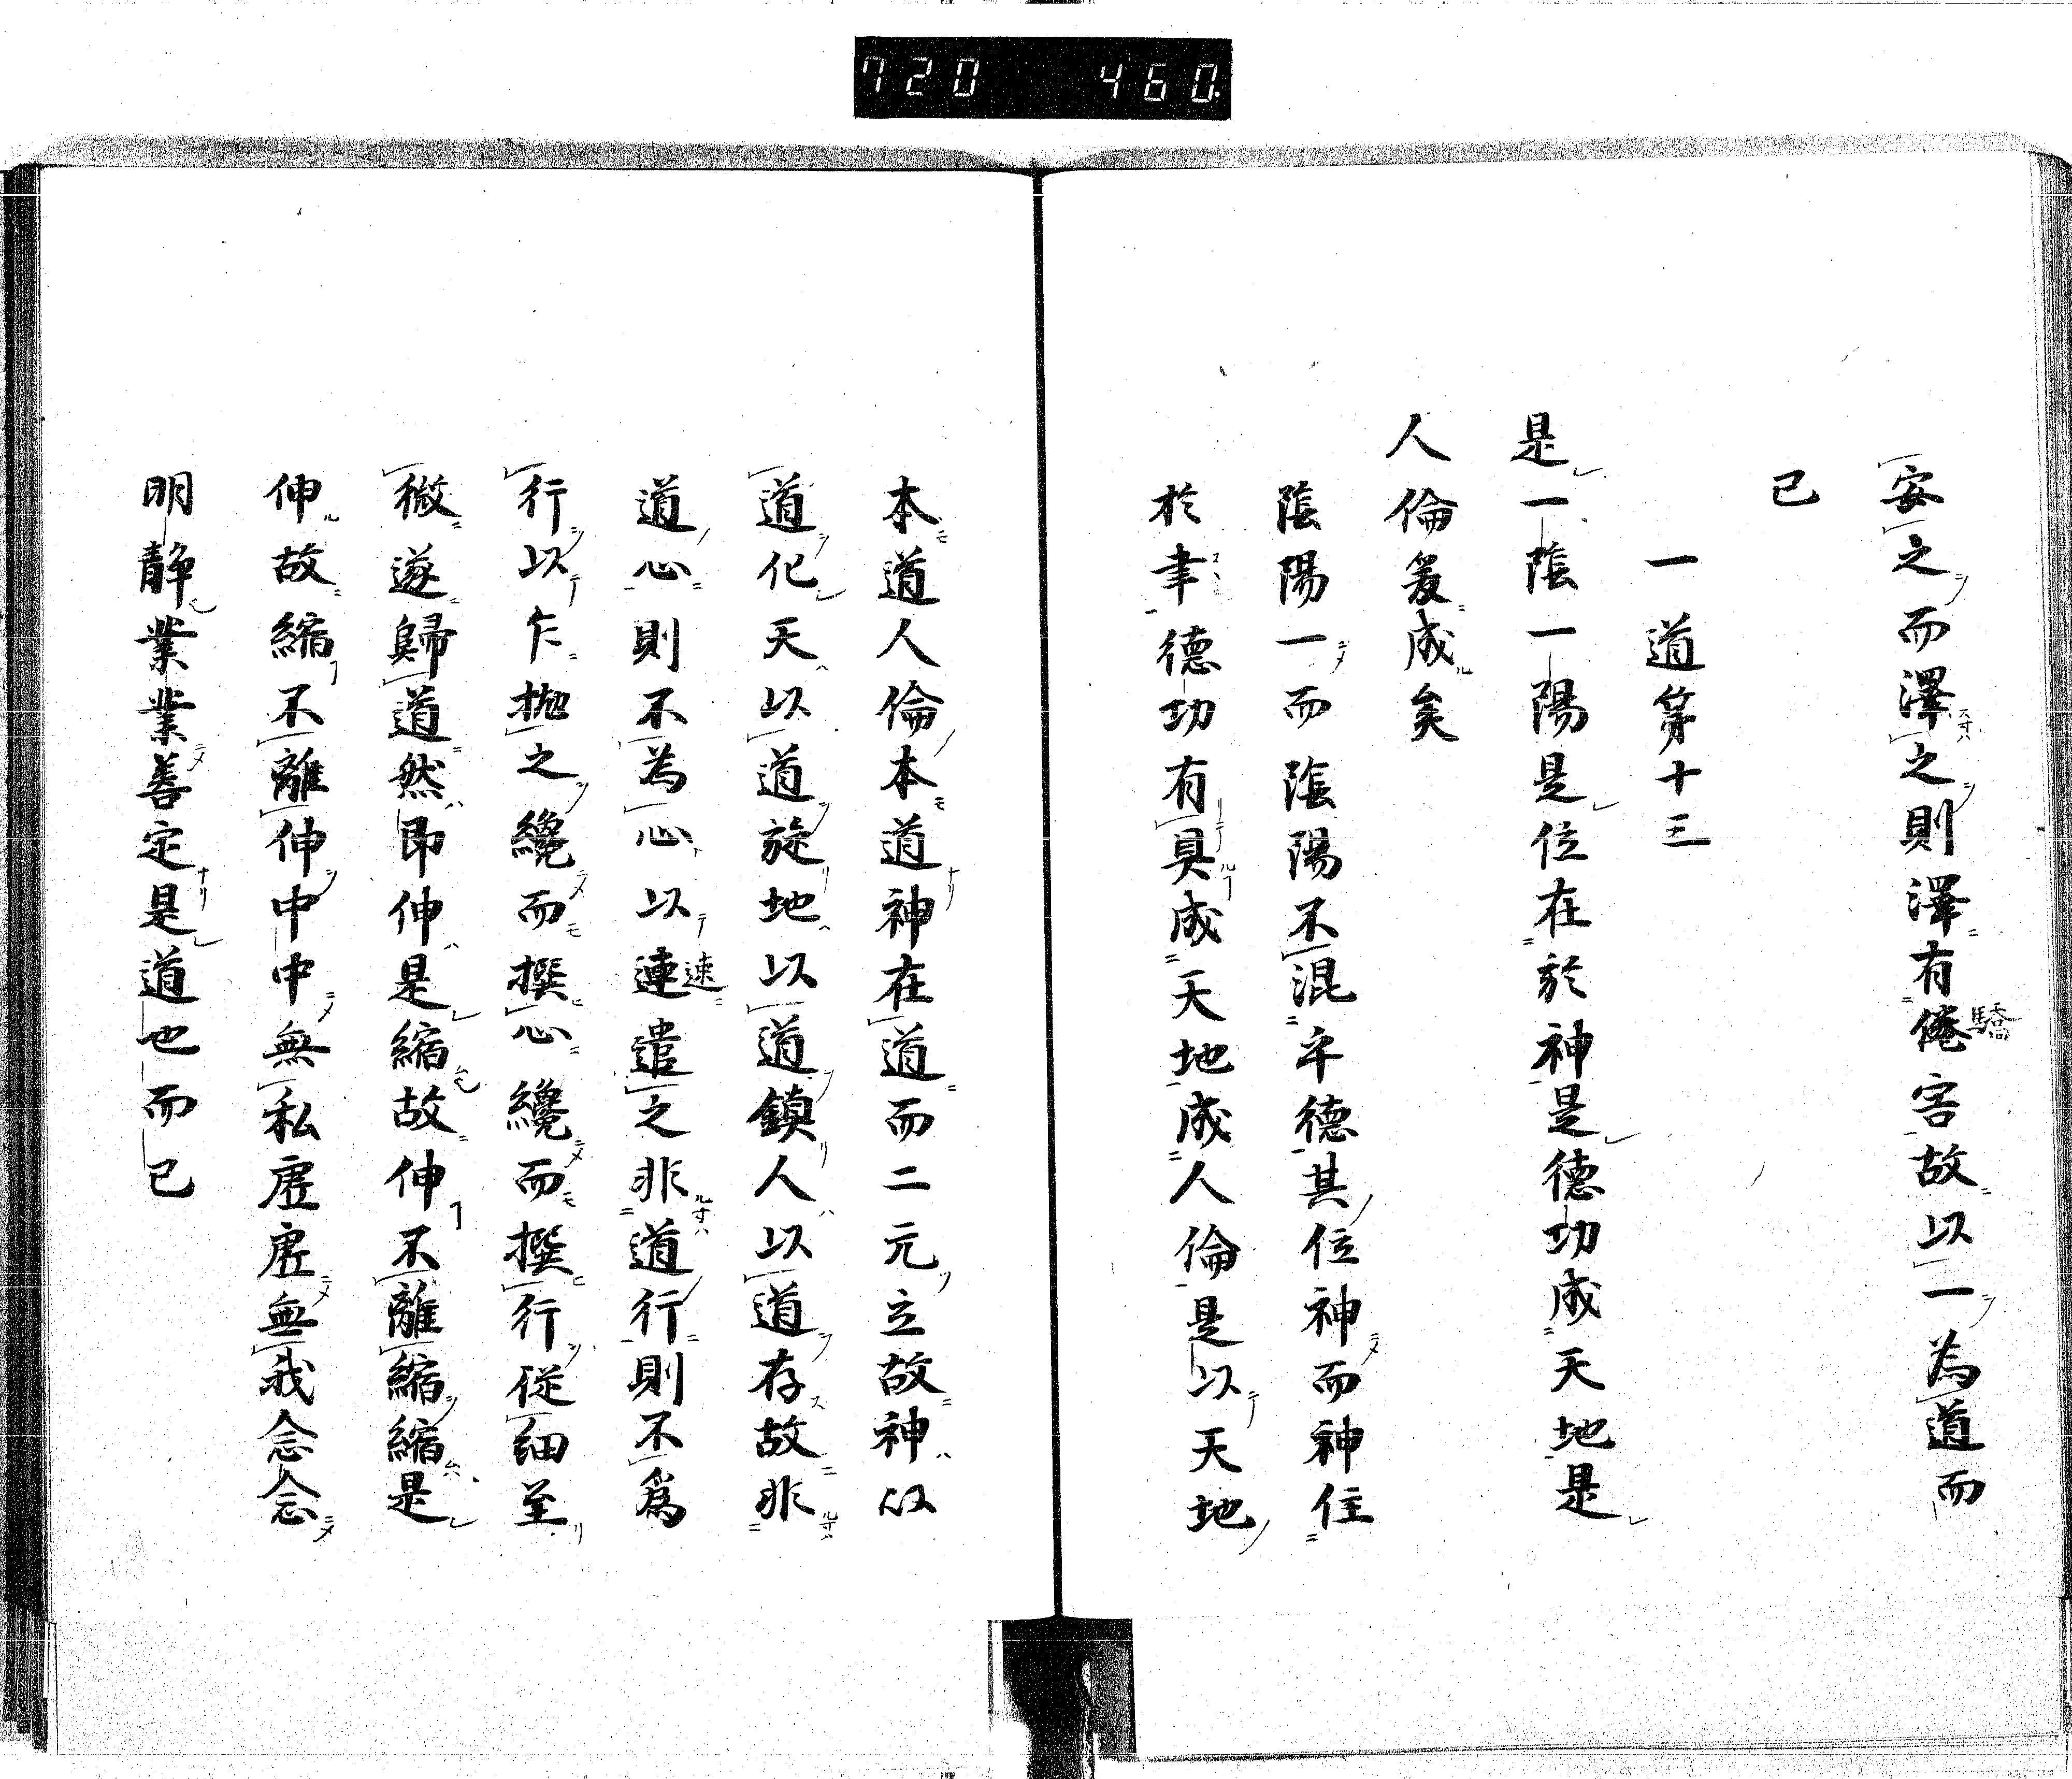 720 460.
安之而澤之則澤有倦害故以一為道而
驕
已
一道第十三
是一陰一陽是位在於神是德功成天地是
人倫爰成矣
陰陽一而陰陽不混平德其位神而神住
於聿德功有具成天地成人倫是以天地
本道人倫本道神在道而二元立故神以
道化天以道旋地以道鎮人以道存故非
道心則不為心以連遣之非道行則不為
速
行以乍拋之纔而撰心纔而撰行従細至
微遂歸道然即伸是縮故伸不離縮縮是
伸故縮不離伸中中無私虛虛無我念念
明靜業業善定是道也而已